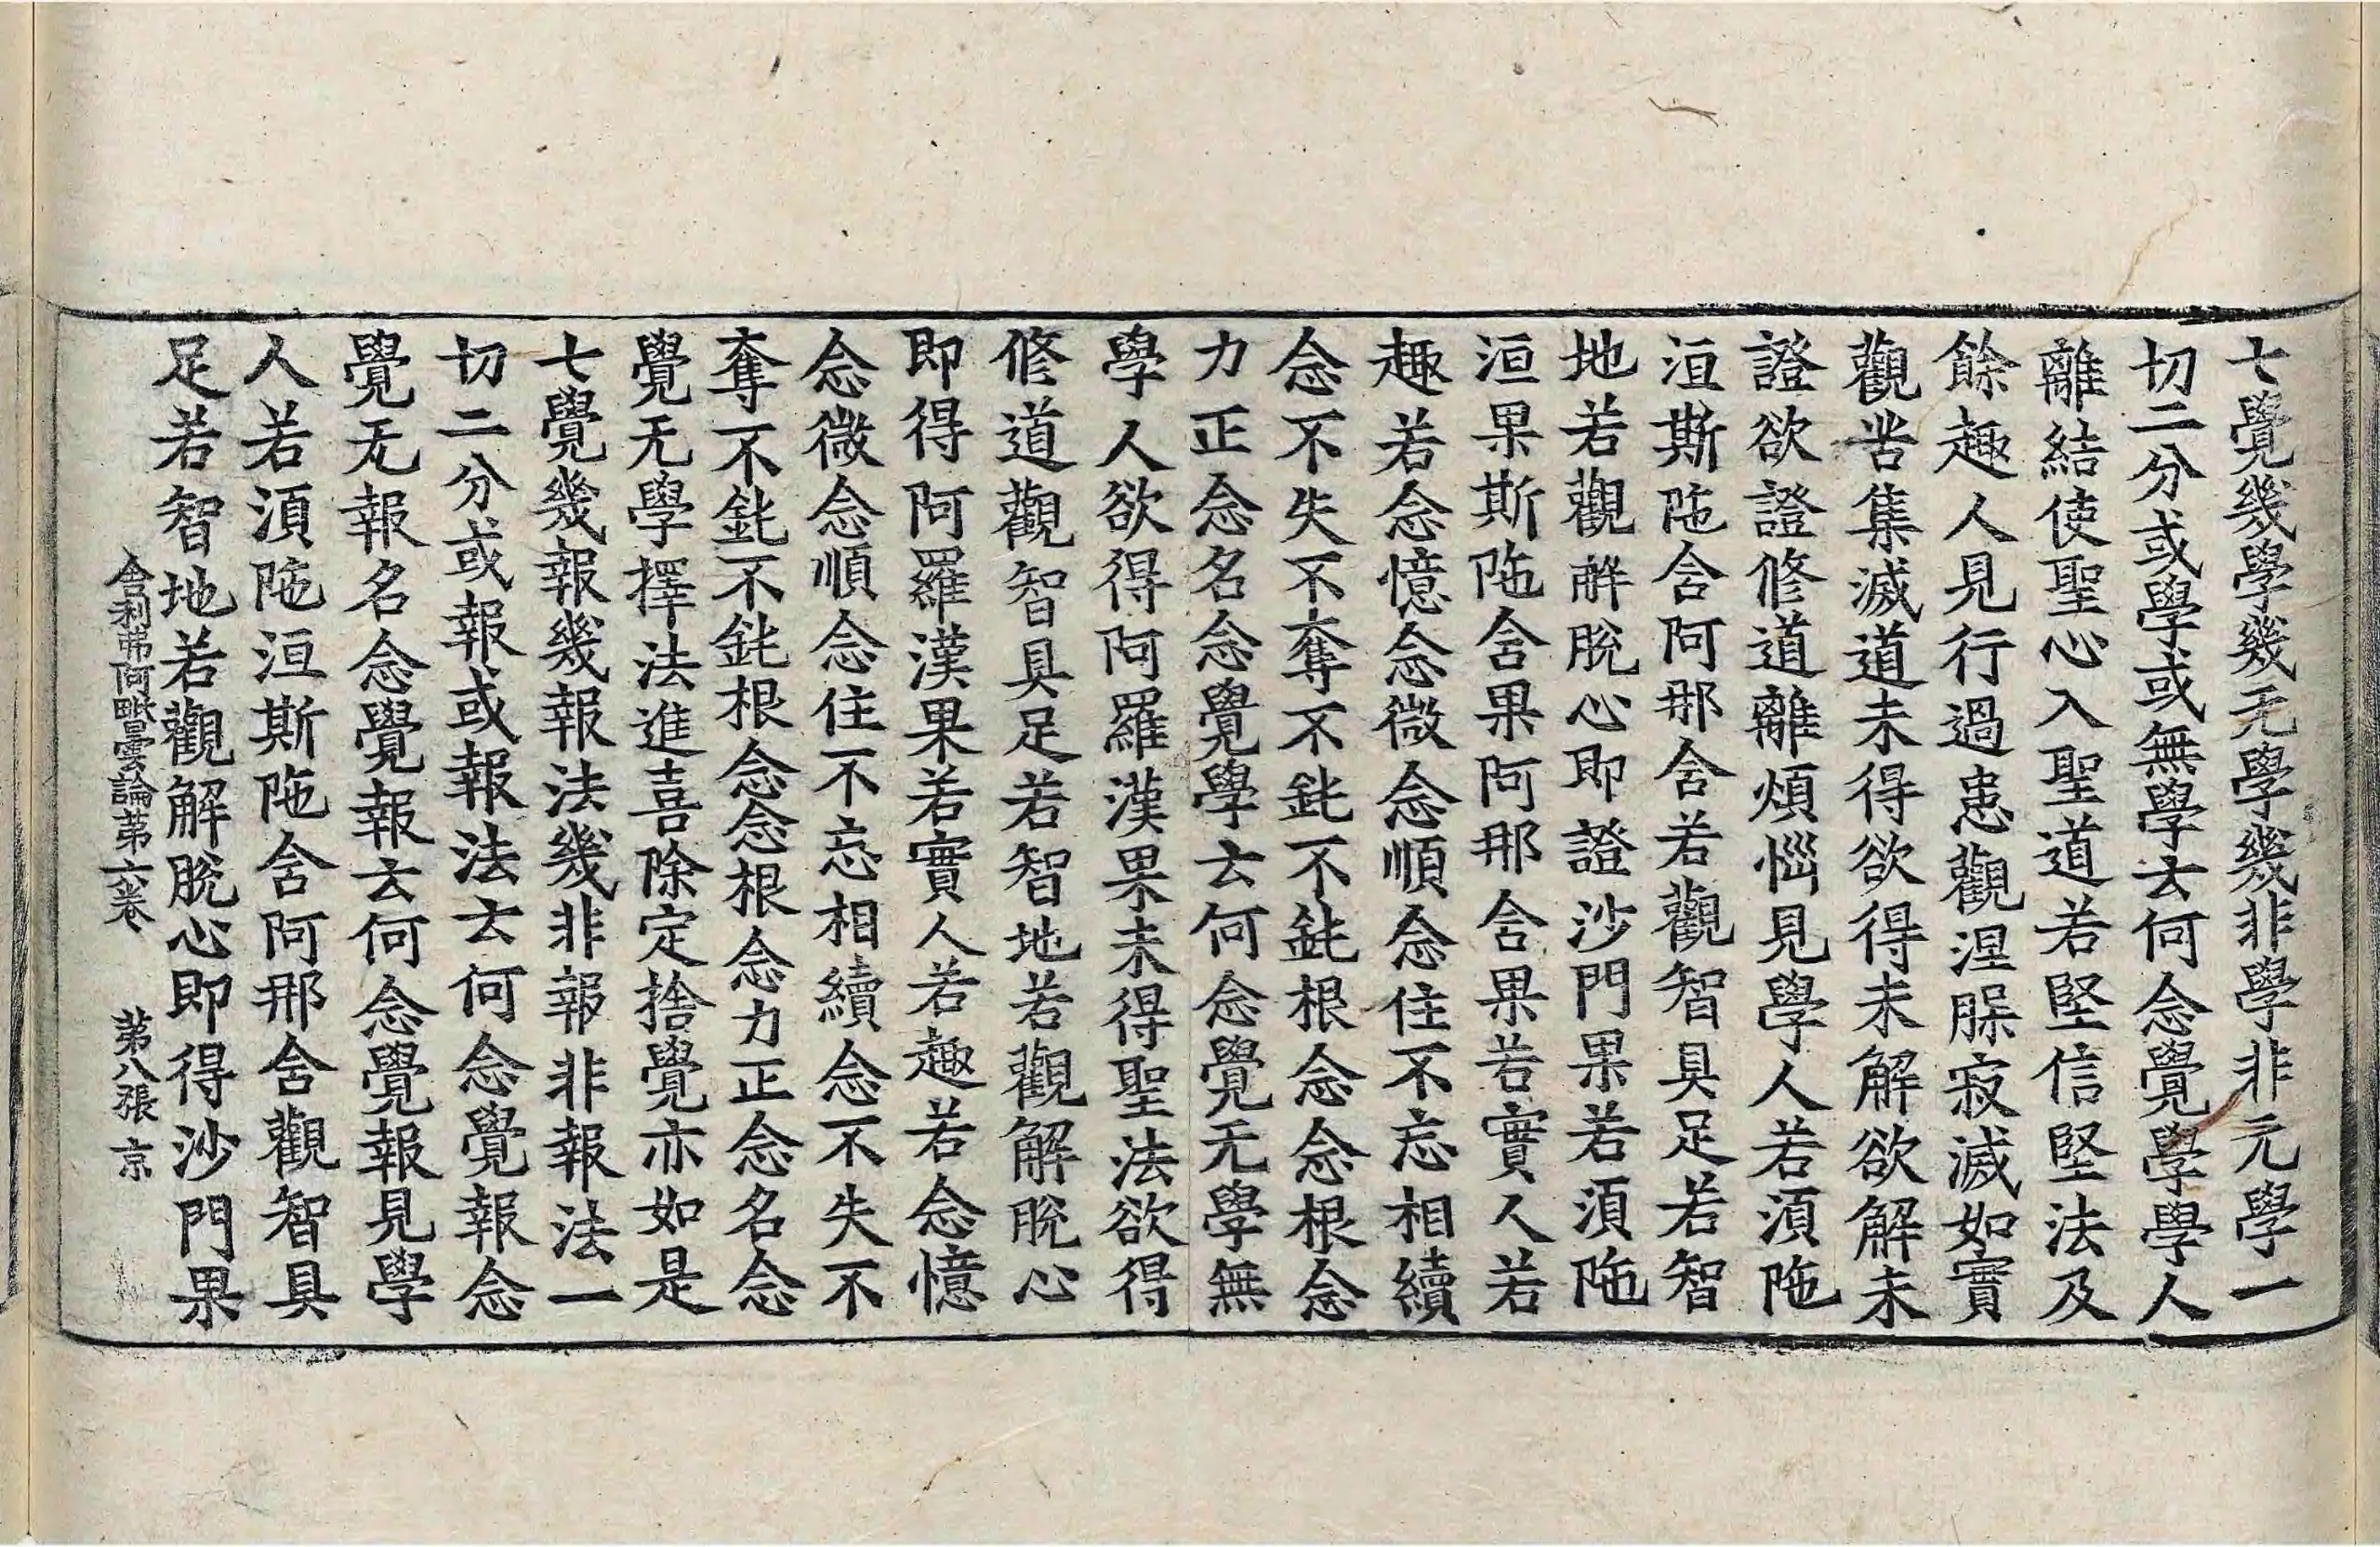 七覺幾學幾无學幾非學非无學一
切二分或學或無學云何念覺學學人
離結使聖心入聖道若堅信堅法及
餘趣人見行過患觀涅槃寂滅如實
觀苦集滅道未得欲得未解欲解未
證欲證修道離煩惱見學人若須陁
洹斯陁含阿那含若觀智具足若智
地若觀解脫心即證沙門果若須陁
洹果斯陁含果阿那含果若實人若
趣若念憶念微念順念住不忘相續
念不失不奪不鈍不鈍根念念根念
力正念名念覺學云何念覺无學無
學人欲得阿羅漢果未得聖法欲得
修道觀智具足若智地若觀解脫心
即得阿羅漢果若實人若趣若念憶
念微念順念住不忘相續念不失不
奪不鈍不鈍根念念根念力正念名念
覺无學擇法進喜除定捨覺亦如是
七覺幾報幾報法幾非報非報法一
切二分或報或報法云何念覺報念
覺无報名念覺報云何念覺報見學
人若須陁洹斯陁含阿那含觀智具
足若智地若觀解脫心即得沙門果
舍利弗阿毗曇論第六卷　第八張　京